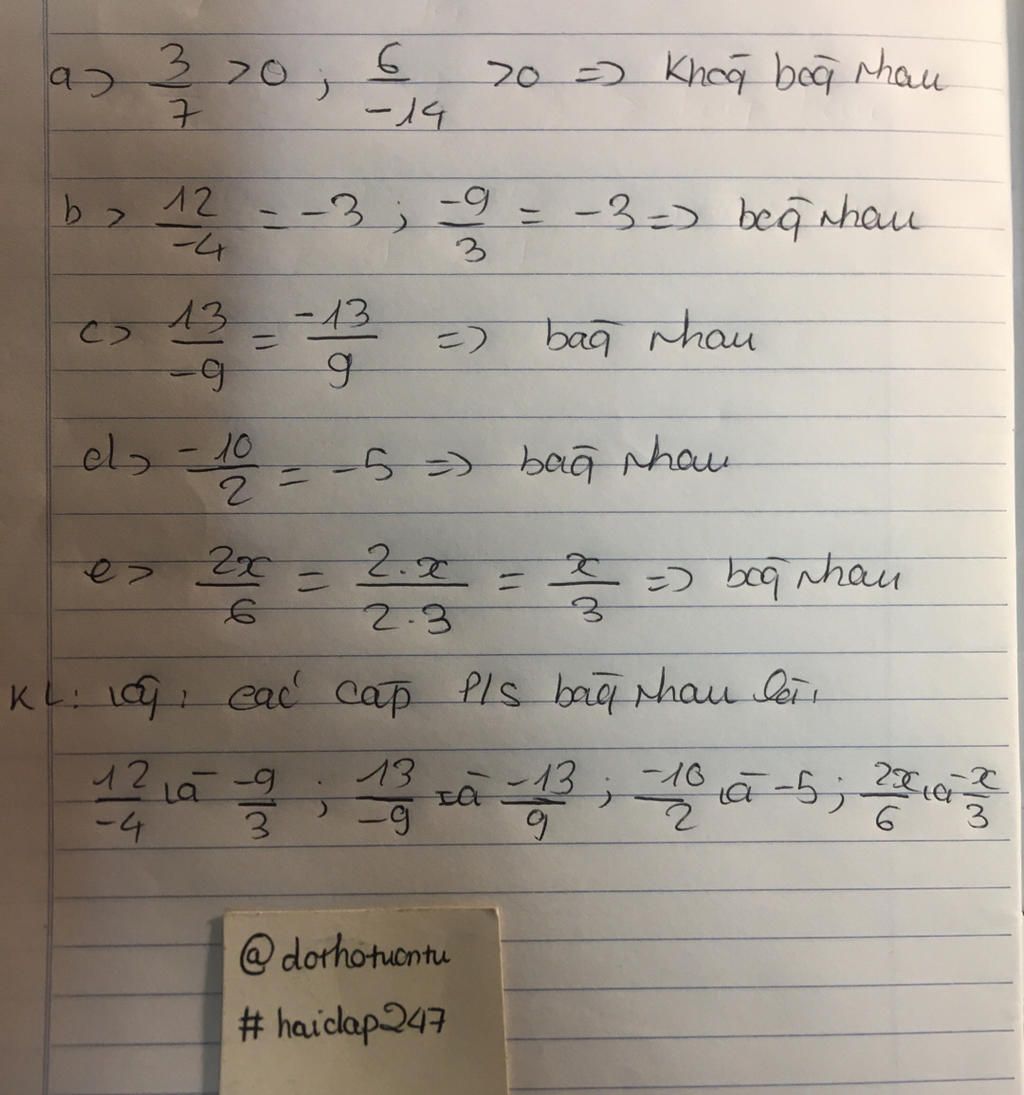 a> 3/7 >0 ; 6/-14 >0 => Khoq̄ baq̄ nhau
b> 12/-4 = -3 ; -9/3 = -3 => baq̄ nhau
c> 13/-9 = -13/9 => baq̄ nhau
d> -10/2 = -5 => baq̄ nhau
e> 2x/6 = 2.x/2.3 = x/3 => baq̄ nhau
KL: các cặp P/S baq̄ nhau là:
12/-4 và -9/3 ; 13/-9 và -13/9 ; -10/2 và -5 ; 2x/6 và x/3
@dorhotuontu
# haidap247